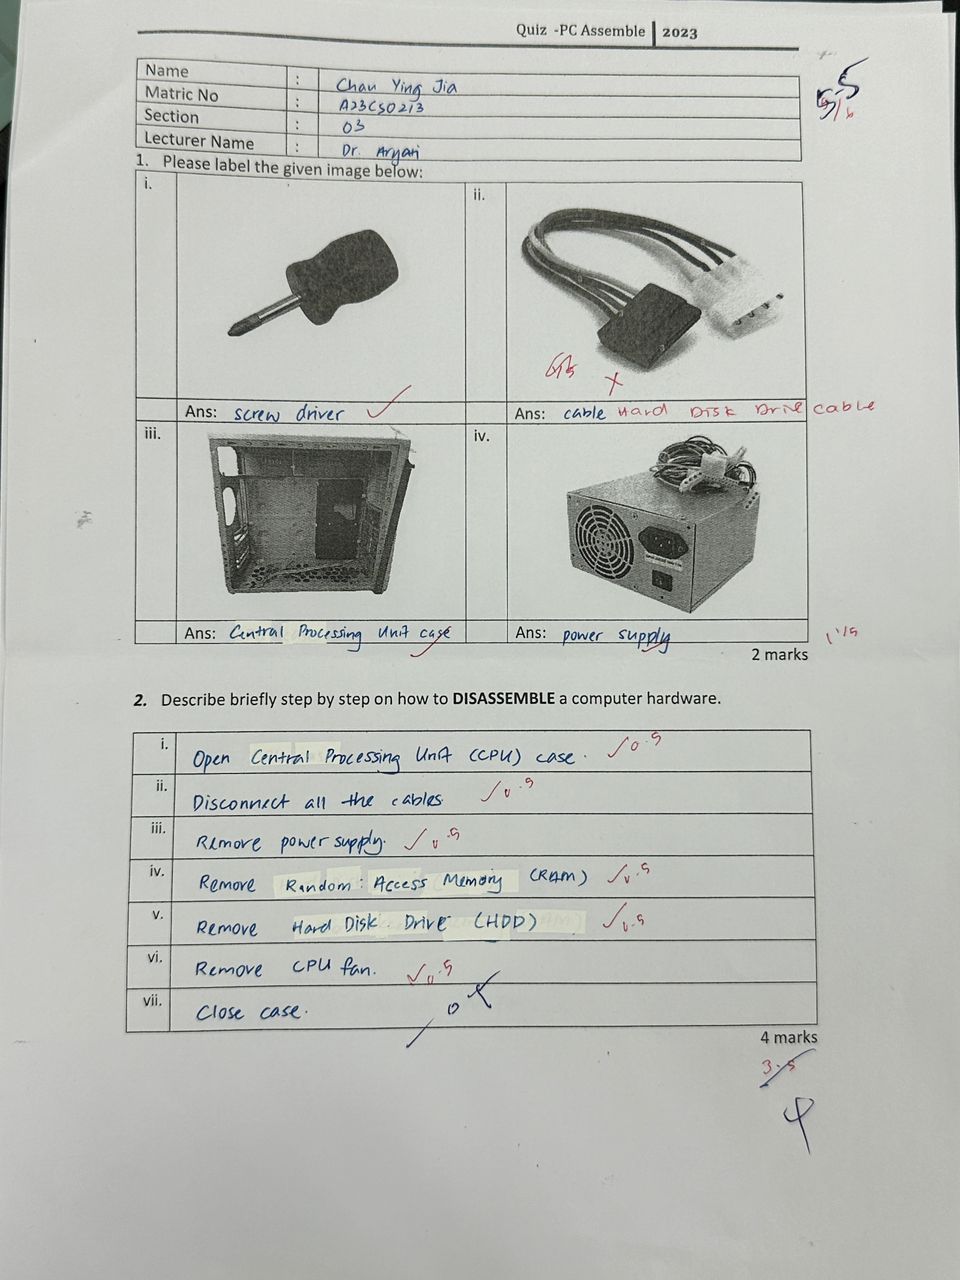 Quiz -PC Assemble | 2023
Name : Chau Ying Jia
Matric No : A23CS0213
Section : 03
Lecturer Name : Dr. Aryati
5.5
5/6
1. Please label the given image below:
i.
ii.
Ans: screw driver
Ans: cable Hard Disk Drive cable
iii.
iv.
Ans: Central Processing Unit case
Ans: power supply
1.5
2 marks
2. Describe briefly step by step on how to DISASSEMBLE a computer hardware.
i. Open Central Processing Unit (CPU) case. 0.5
ii. Disconnect all the cables. 0.5
iii. Remove power supply. 0.5
iv. Remove Random Access Memory (RAM) 0.5
v. Remove Hard Disk Drive (HDD) 0.5
vi. Remove CPU fan. 0.5
vii. Close case.
4 marks
3.5
4